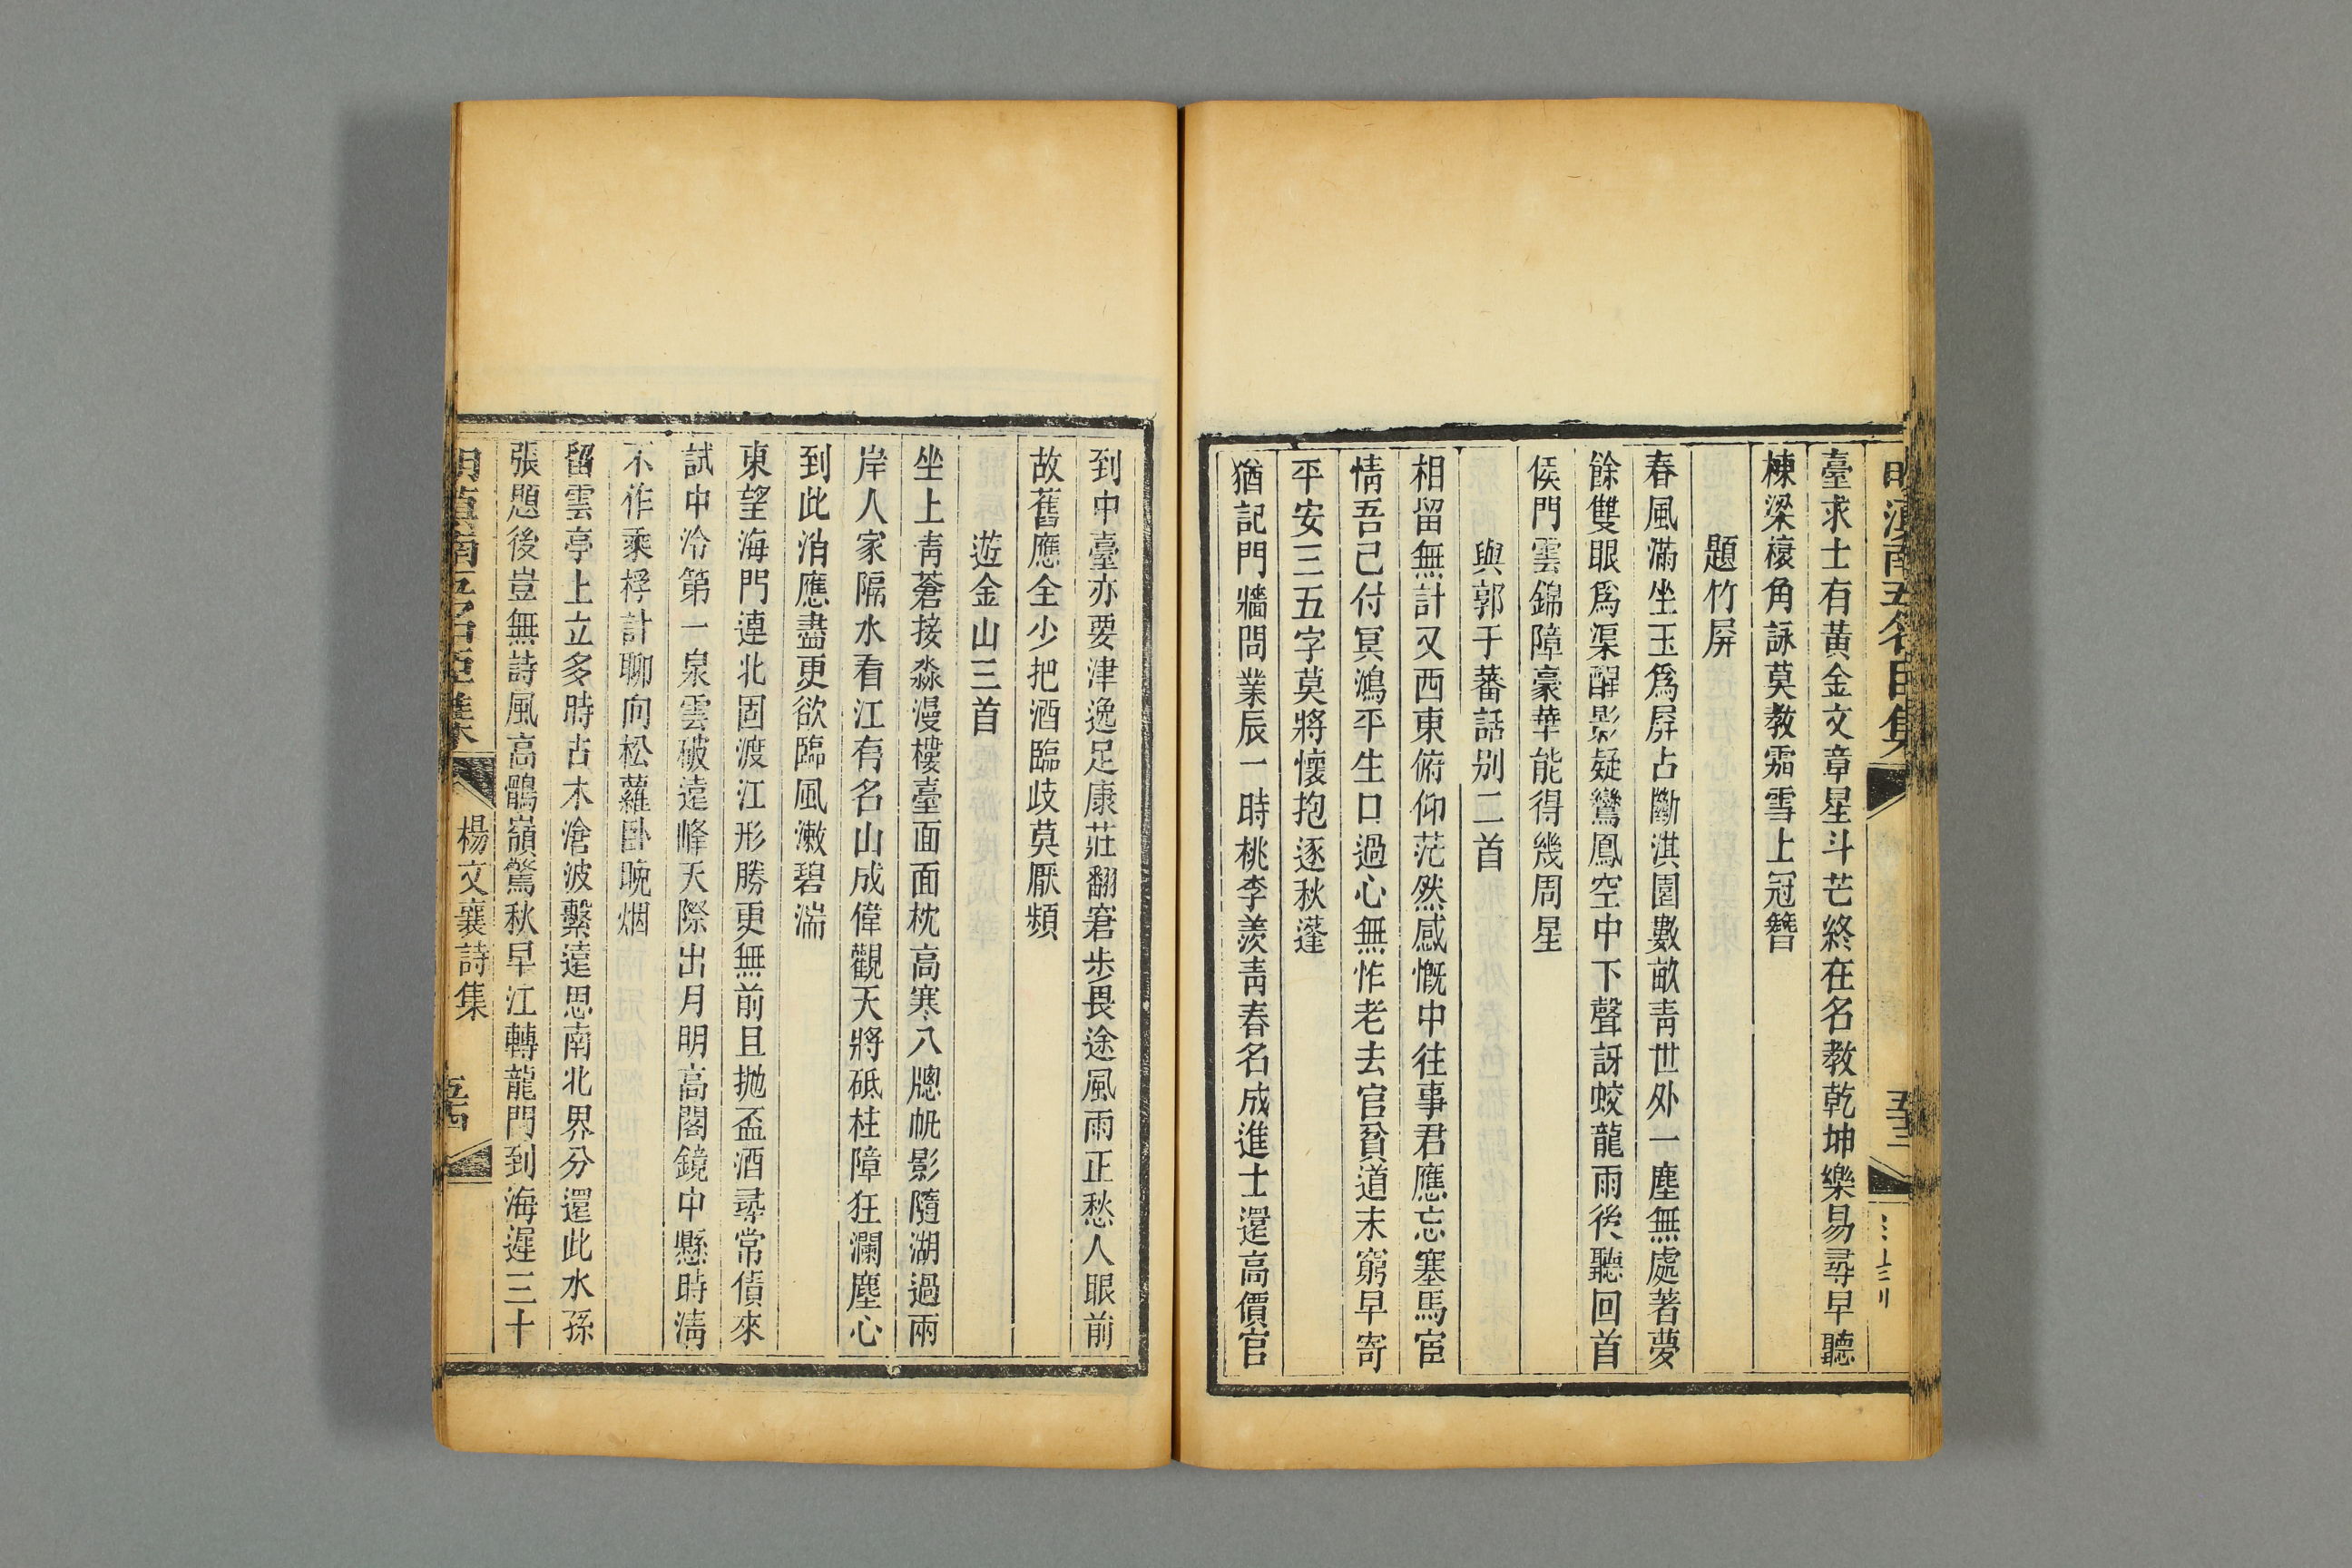 臺求士有黃金文章星斗芒終在名教乾坤樂易尋早聽
棟梁榱角詠莫教霜雪上冠簪
題竹屏
春風滿坐玉爲屏占斷淇園數畝靑世外一塵無處著夢
餘雙眼爲渠醒影疑鸞鳳空中下聲訝蛟龍雨後聽回首
侯門雲錦障豪華能得幾周星
與郭于蕃話别二首
相留無計又西東俯仰茫然感慨中往事君應忘塞馬宦
情吾已付冥鴻平生口過心無怍老去官貧道未窮早寄
平安三五字莫將懷抱逐秋蓬
猶記門牆問業辰一時桃李羨靑春名成進士還高價官
到中臺亦要津逸足康莊翻窘步畏途風雨正愁人眼前
故舊應全少把酒臨歧莫厭頻
遊金山三首
坐上靑蒼接淼漫樓臺面面枕高寒八牕帆影隨湖過兩
岸人家隔水看江有名山成偉觀天將砥柱障狂瀾塵心
到此消應盡更欲臨風漱碧湍
東望海門連北固渡江形勝更無前且拋盃酒尋常債來
試中泠第一泉雲破遠峰天際出月明高閣鏡中懸時淸
不作乘桴計聊向松蘿臥晚烟
留雲亭上立多時古木滄波繫遠思南北界分還此水孫
張題後豈無詩風高鶻嶺驚秋早江轉龍門到海遲三十
楊文襄詩集